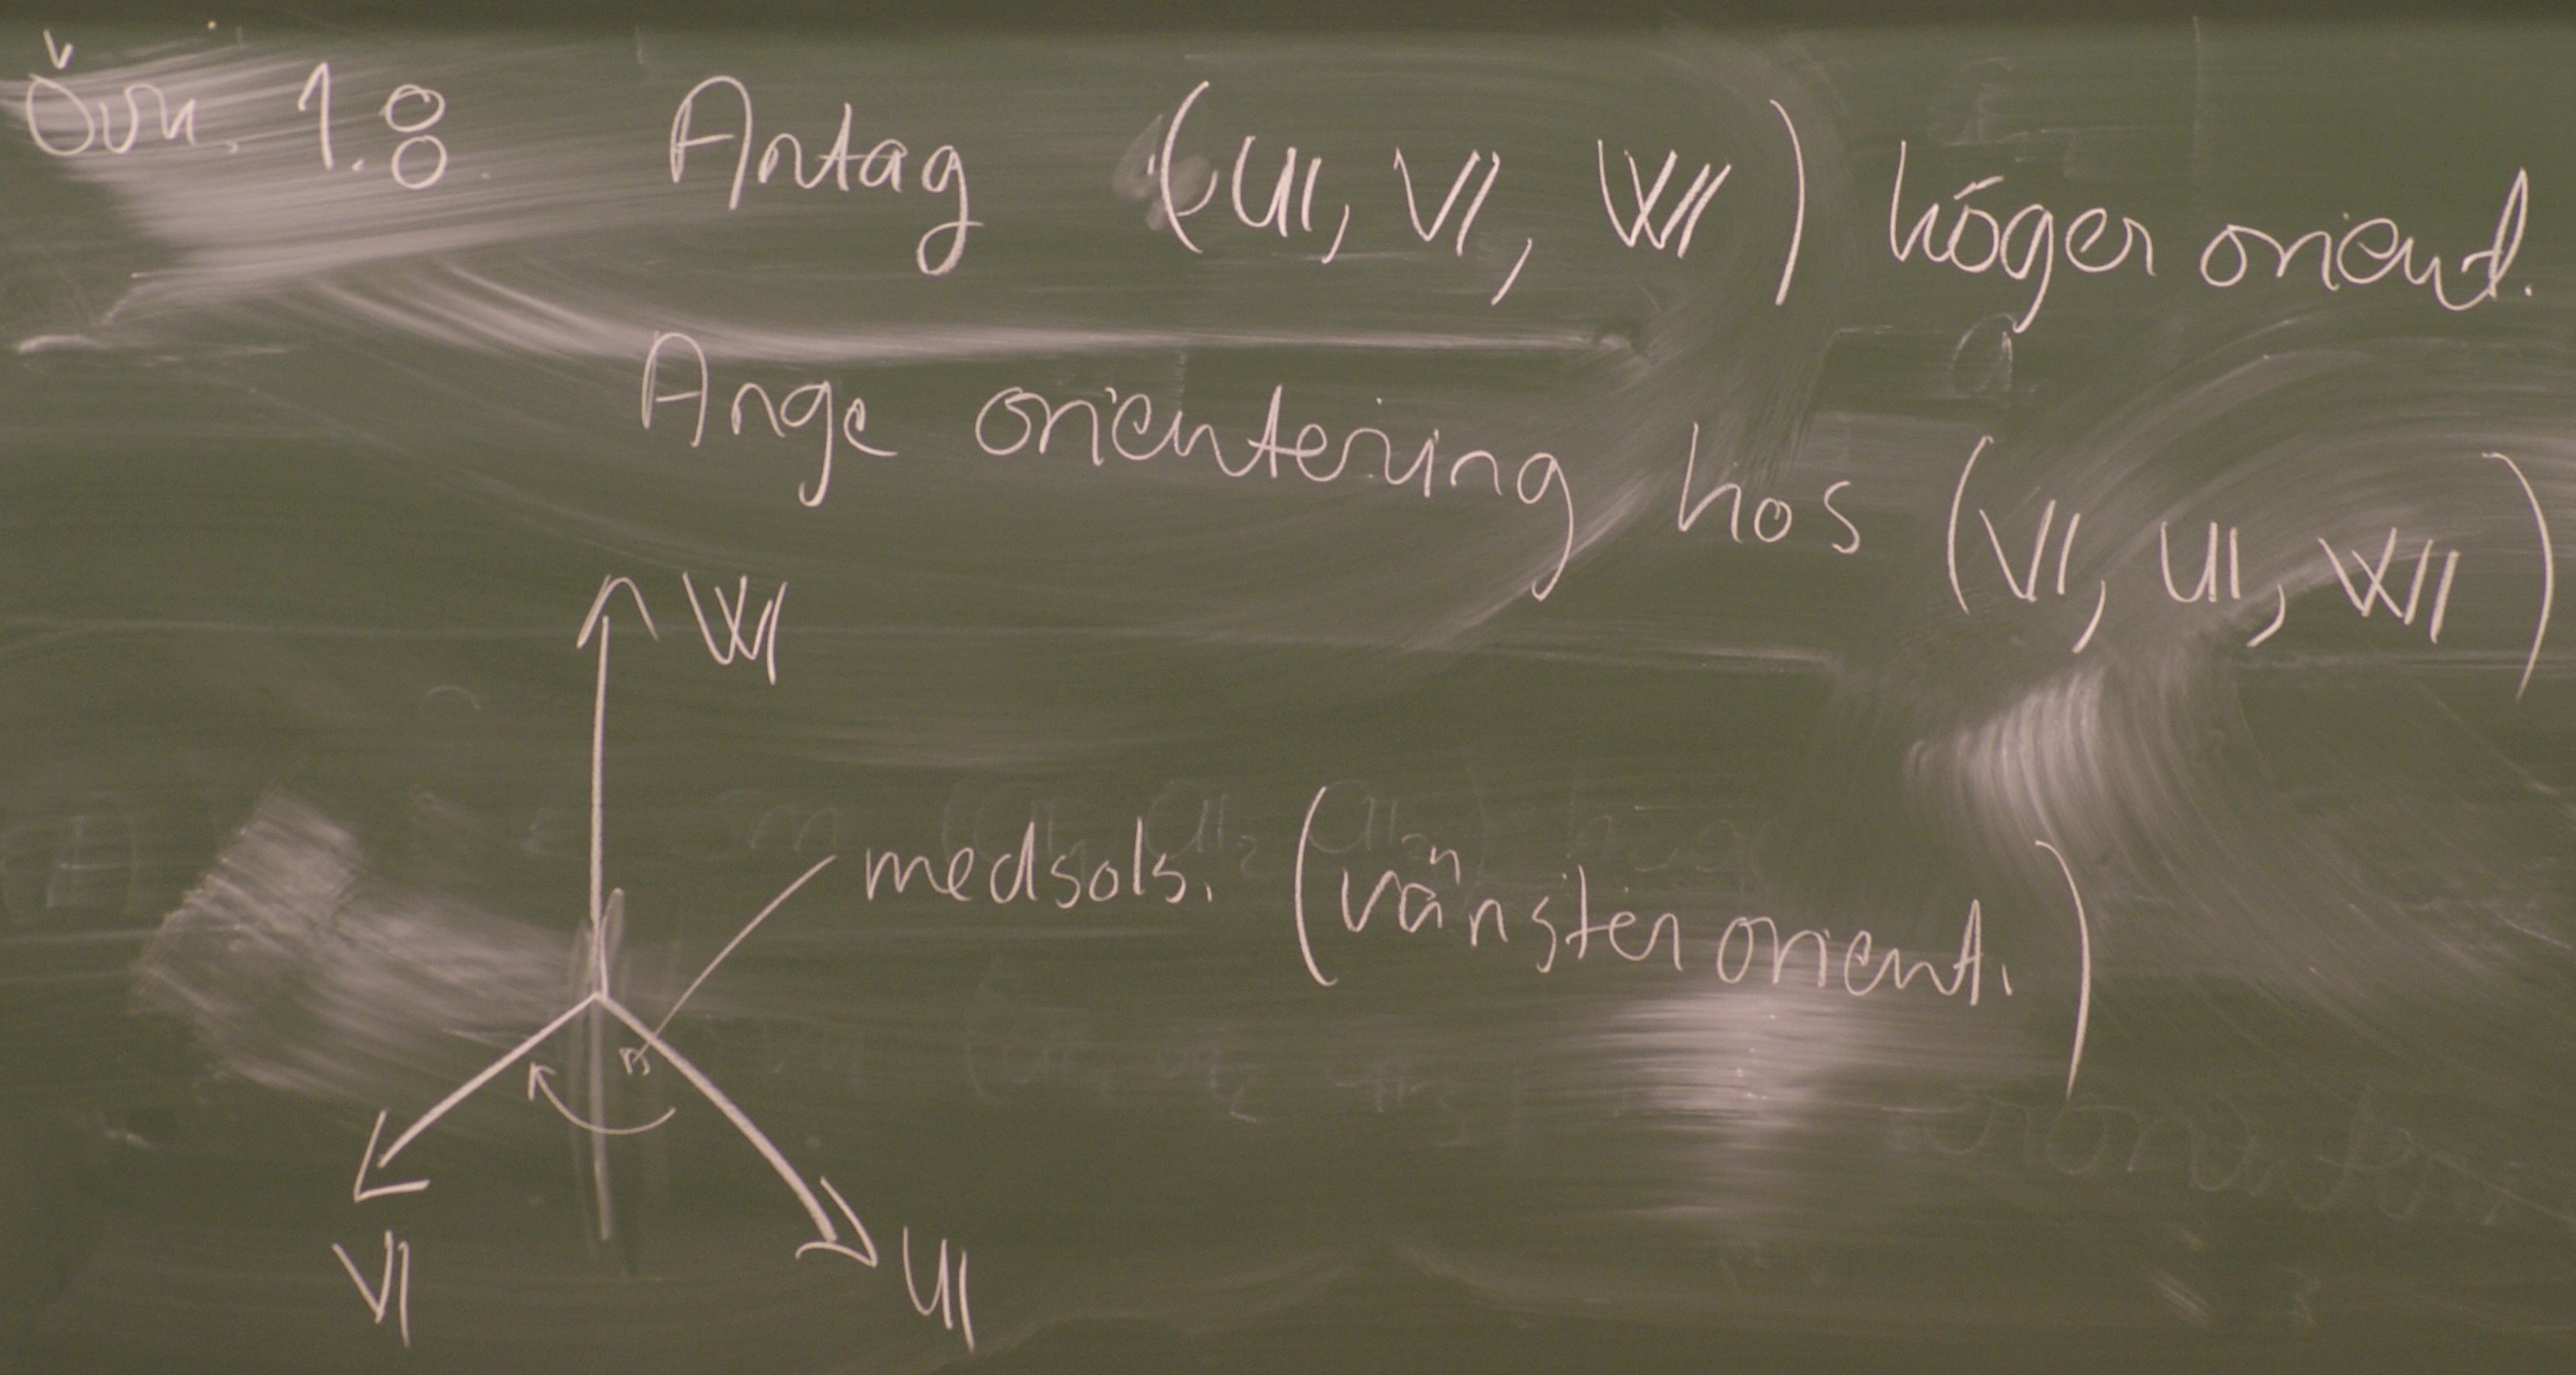 Övn. 1.8. Antag (u, v, w) höger orient.
Ange orientering hos (v, u, w)
w
medsols. (vänsterorient.)
v
u